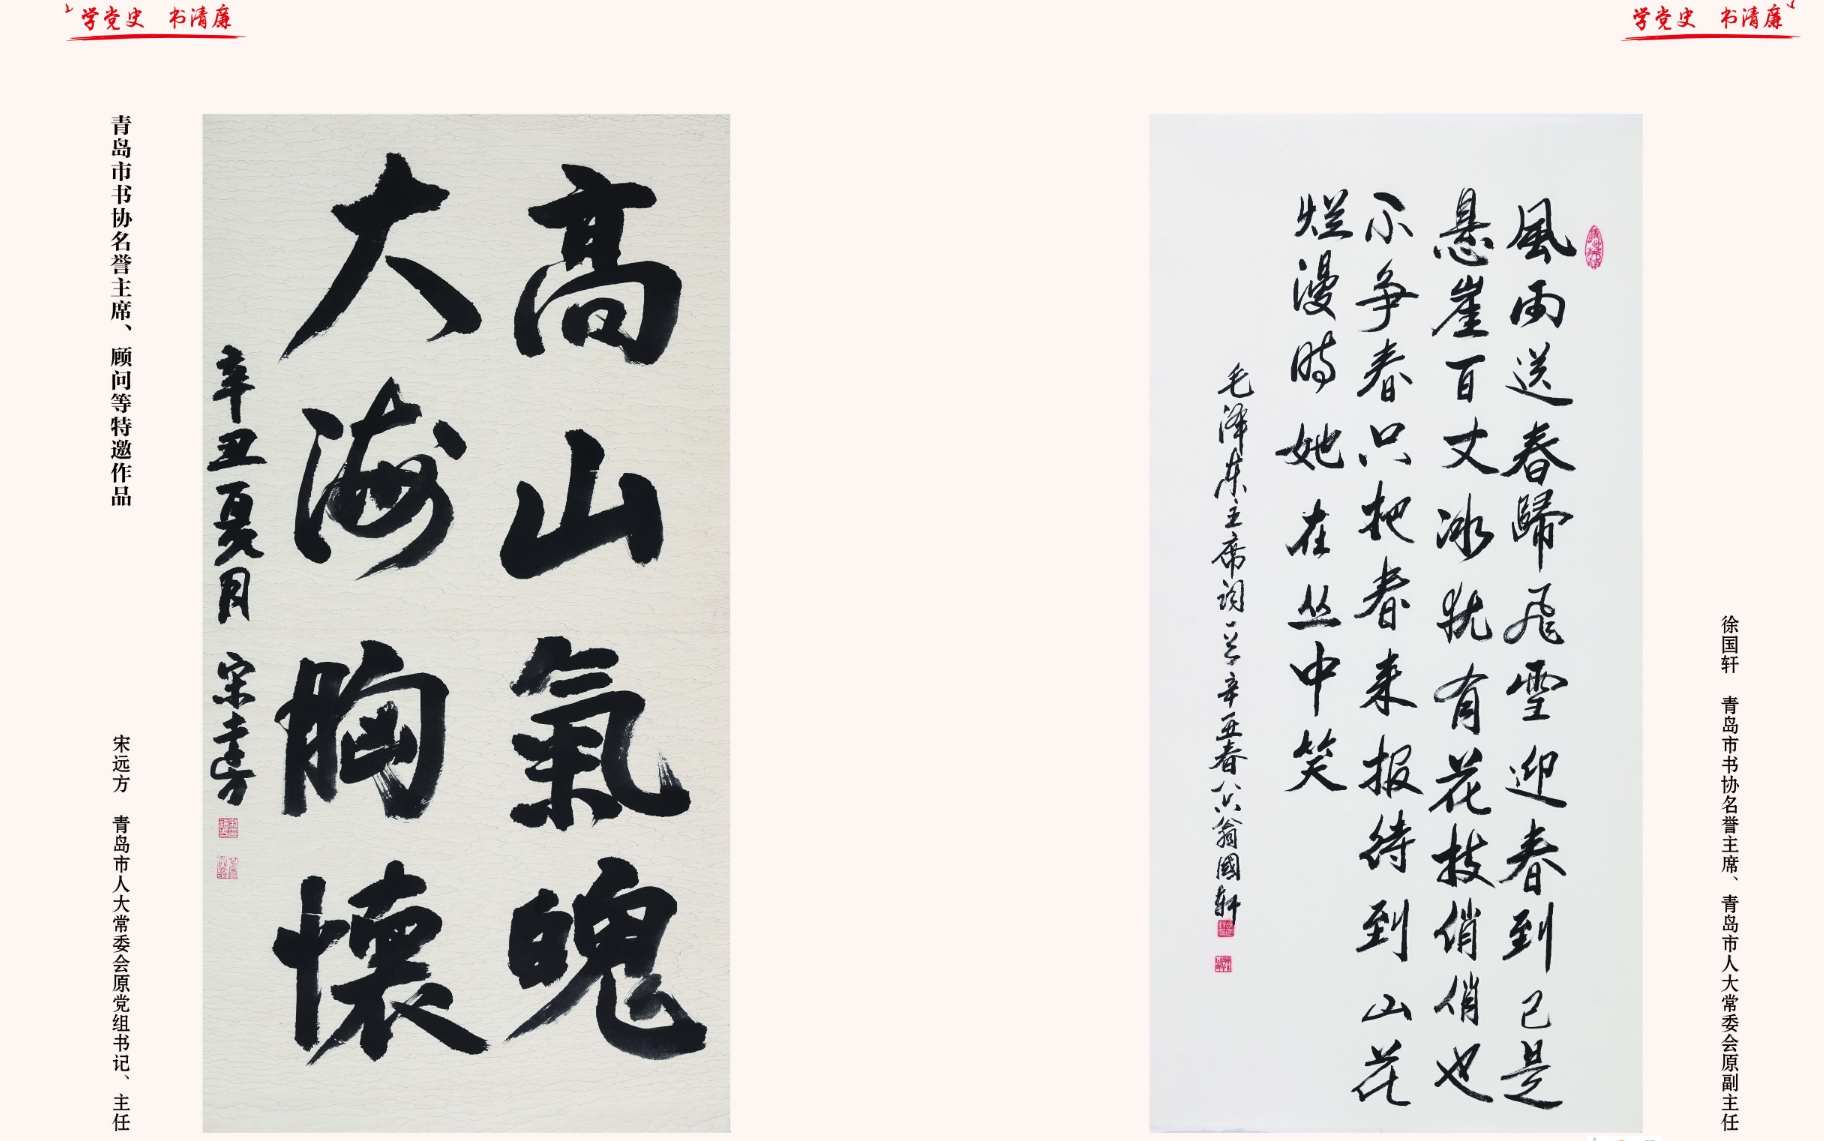 学党史 书清廉
青岛市书协名誉主席、顾问等特邀作品
高山氣魄
大海胸懷
辛丑夏月 宋遠方
宋远方 青岛市人大常委会原党组书记、主任
学党史 书清廉
風雨送春歸飛雪迎春到已是
悬崖百丈冰犹有花枝俏俏也
不争春只把春来报待到山花
烂漫時她在丛中笑
毛泽东主席词一首辛丑春八六翁國轩
徐国轩 青岛市书协名誉主席、青岛市人大常委会原副主任